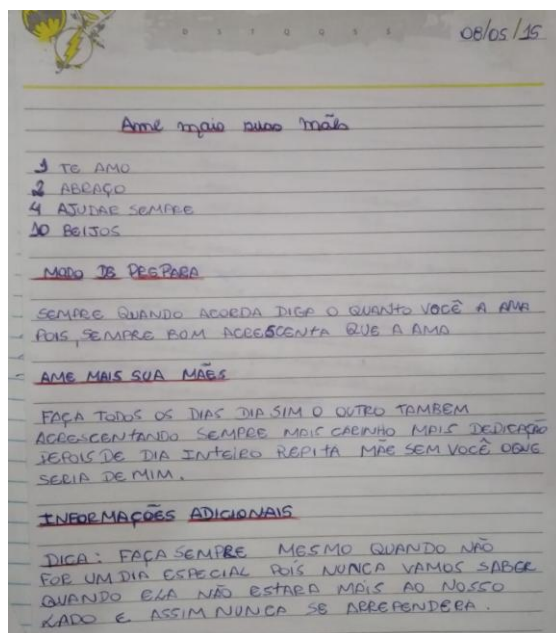 D S T Q Q S S
08/05/15
Ame mais suas mães
1 TE AMO
2 ABRAÇO
4 AJUDAR SEMPRE
10 BEIJOS
MODO DE PREPARA
SEMPRE QUANDO ACORDA DIGA O QUANTO VOCÊ A AMA
POIS, SEMPRE BOM ACRESCENTA QUE A AMO
AME MAIS SUA MÃES
FAÇA TODOS OS DIAS DIA SIM O OUTRO TAMBEM
ACRESCENTANDO SEMPRE MAIS CARINHO MAIS DEDICAÇÃO
DEPOIS DE DIA INTEIRO REPITA MÃE SEM VOCÊ OQUE
SERIA DE MIM.
INFORMAÇÕES ADICIONAIS
DICA: FAÇA SEMPRE MESMO QUANDO NÃO
FOR UM DIA ESPECIAL POIS NUNCA VAMOS SABER
QUANDO ELA NÃO ESTARA MAIS AO NOSSO
LADO E ASSIM NUNCA SE ARREPENDERA.